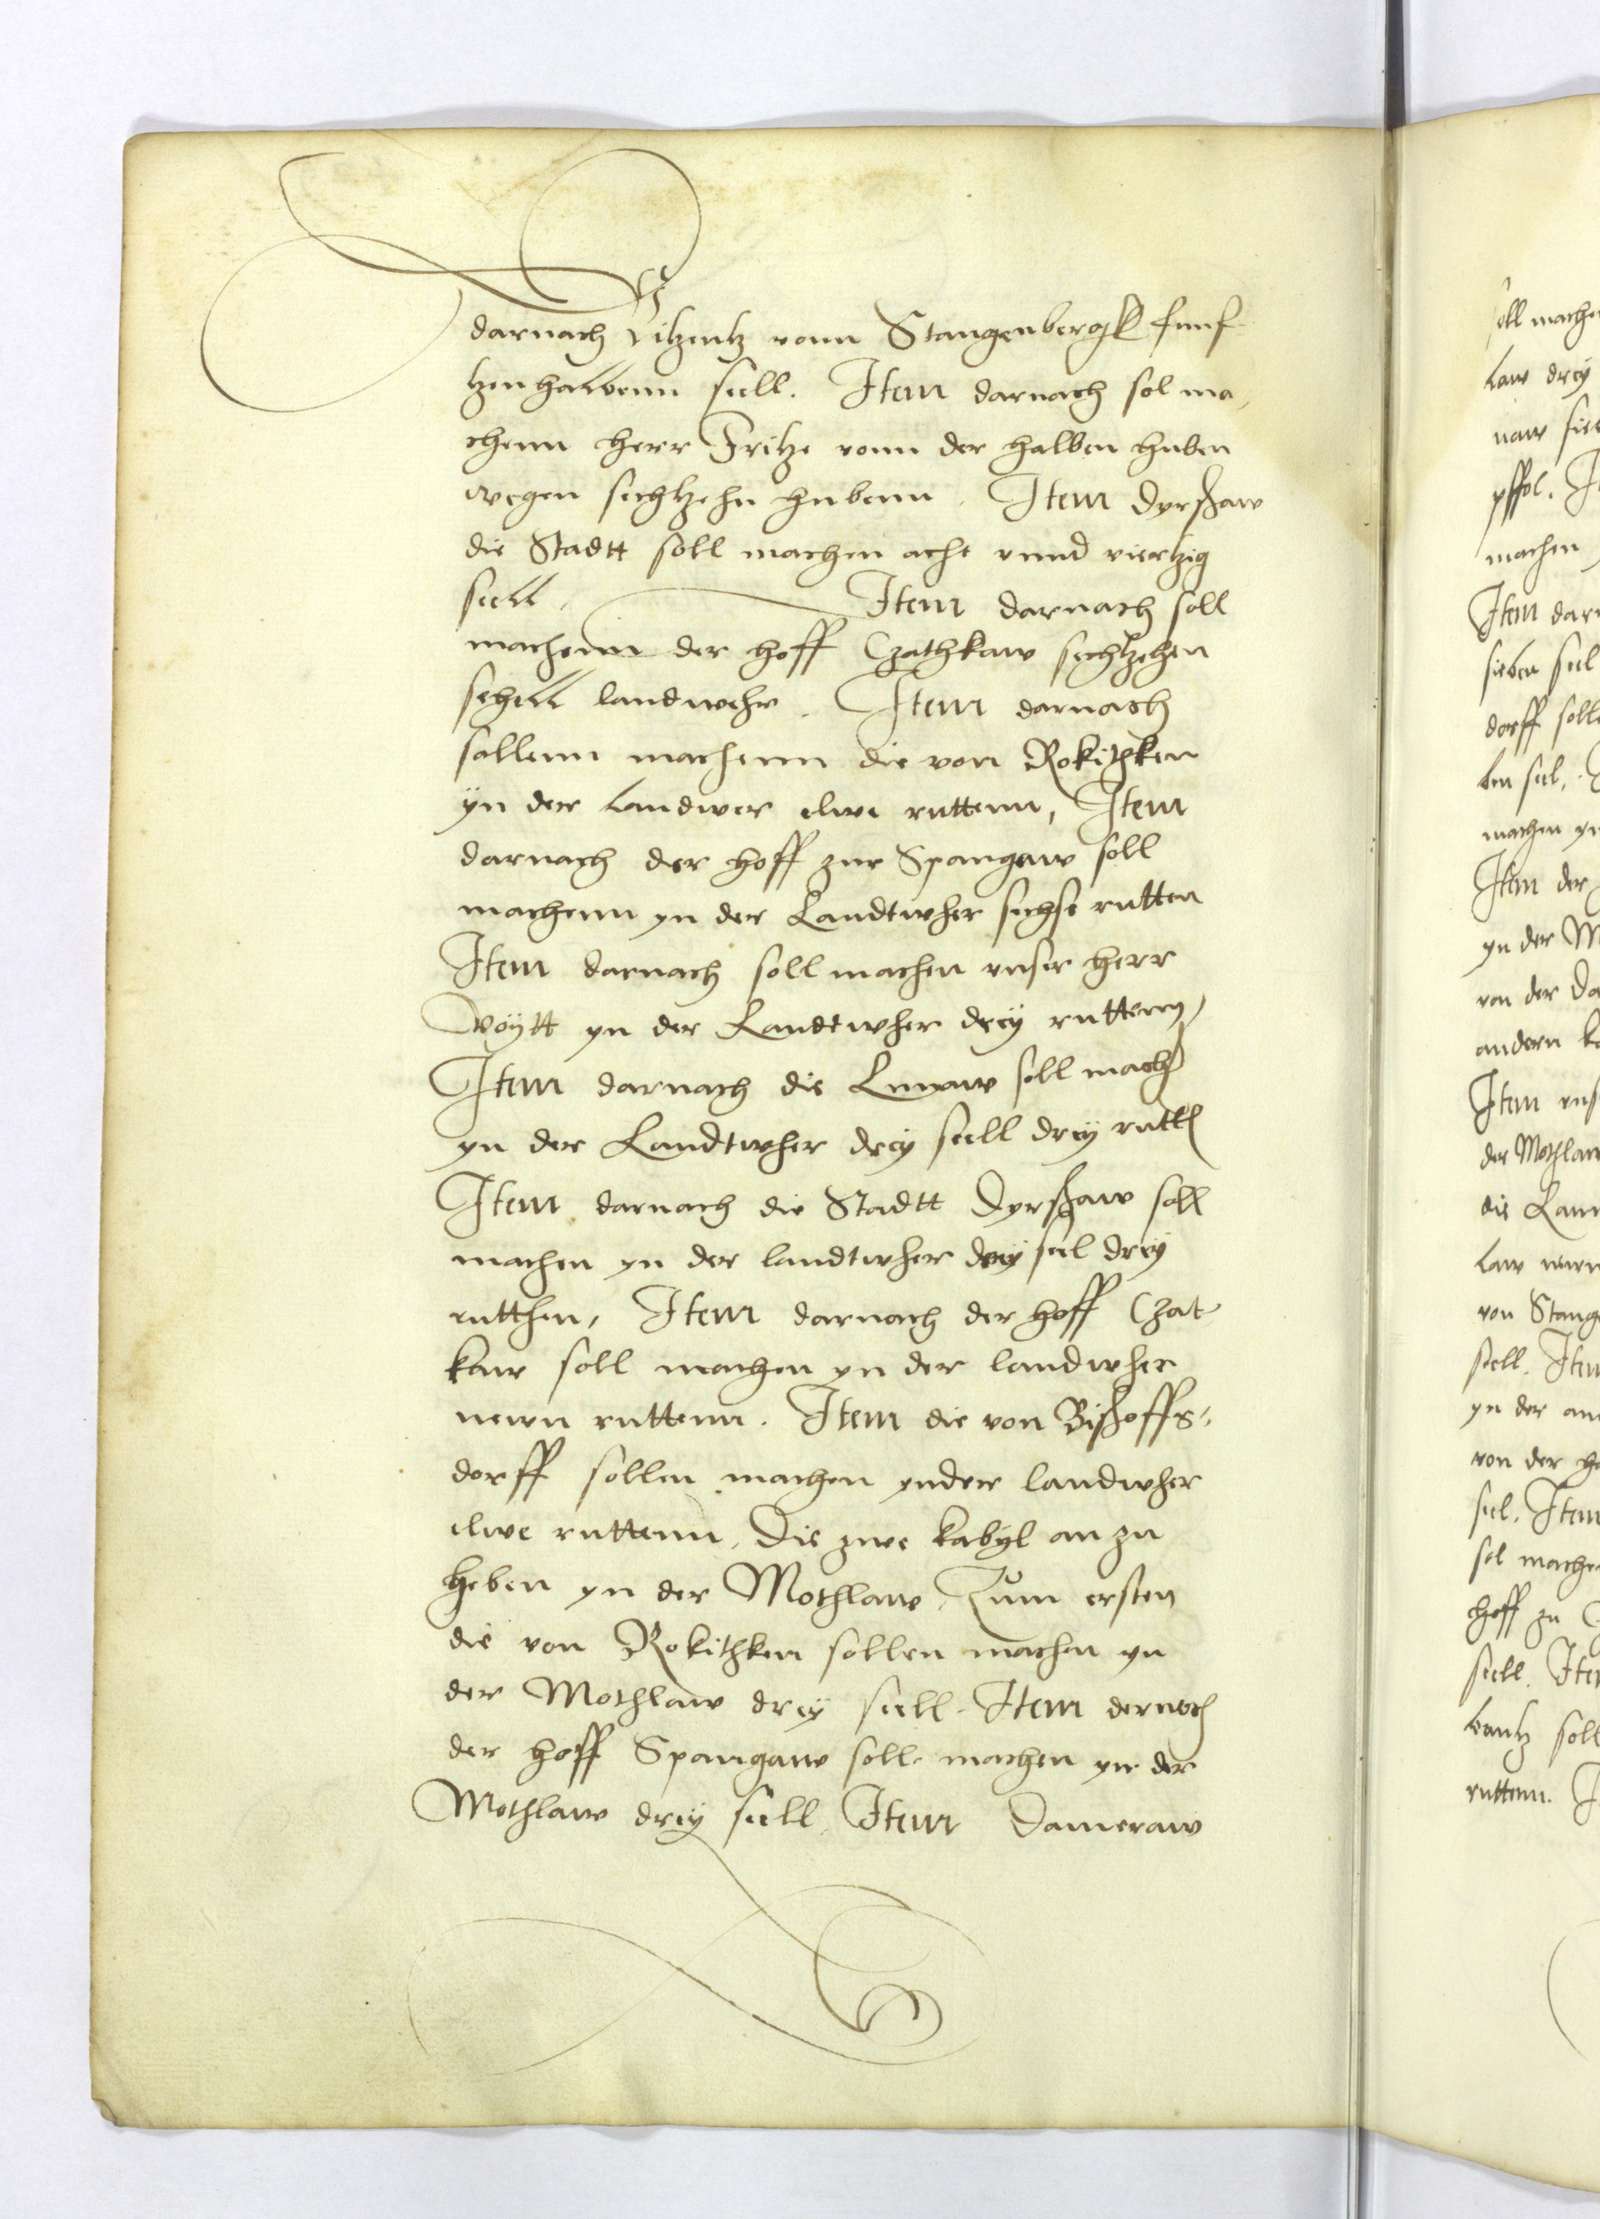 darnach Vitzentz vonn Stangenbergk funf
tzenhalbenn siell. Item darnach sol ma,
chenn herr Fritze vonn der halben huben
wegen sechtzehn hubenn. Item Dyrßaw
die Stadtt soll machen acht vnnd viertzig
siell. Item darnach soll
machenn der hoff Czathkaw sechtzehen
sehell landwehr. Item darnach
sollenn machenn die von Rokithken
ÿn der Landwer elwe ruttenn, Item
darnach der hoff zur Spangaw soll
machenn yn der Landtwher sechse rutten
Item darnach soll machen vnser herr
Voÿtt yn der Landtwher dreÿ ruttenn,
Item darnach die soll mach
yn der Landtwher dreÿ siell dreÿ rutt
Item darnach die Stadtt Dyrßaw soll
machen yn der landtwher dreÿ siel dreÿ
rutthen, Item darnach der hoff Czat
kaw soll machen yn der landwher
newn ruttenn. Item die von Bischoffs,
dorff sollen machen ynder landwher
elwe ruttenn, Die zwe kabyl an zu
heben yn der Mothlaw, Zum ersten
die von Rokithken sollen machen yn
der Mothlaw dreÿ siell. Item dernoch
der hoff Spangaw soll machen yn der
Mothlaw dreÿ siell, Item Dameraw
oll mache
Law dreÿ
naw sie
machen
Item darn
sieben siel
dorff solle
ben siel,
machen yn
Item der
yn der M
von der Da
andern k
Item vns
der Mothlaw
die Lan
Law
von Stang
siell. Item
yn der an
von der h
siel, Item
sol mache
hoff zu
siell. Ite
soll
ruttenn. I